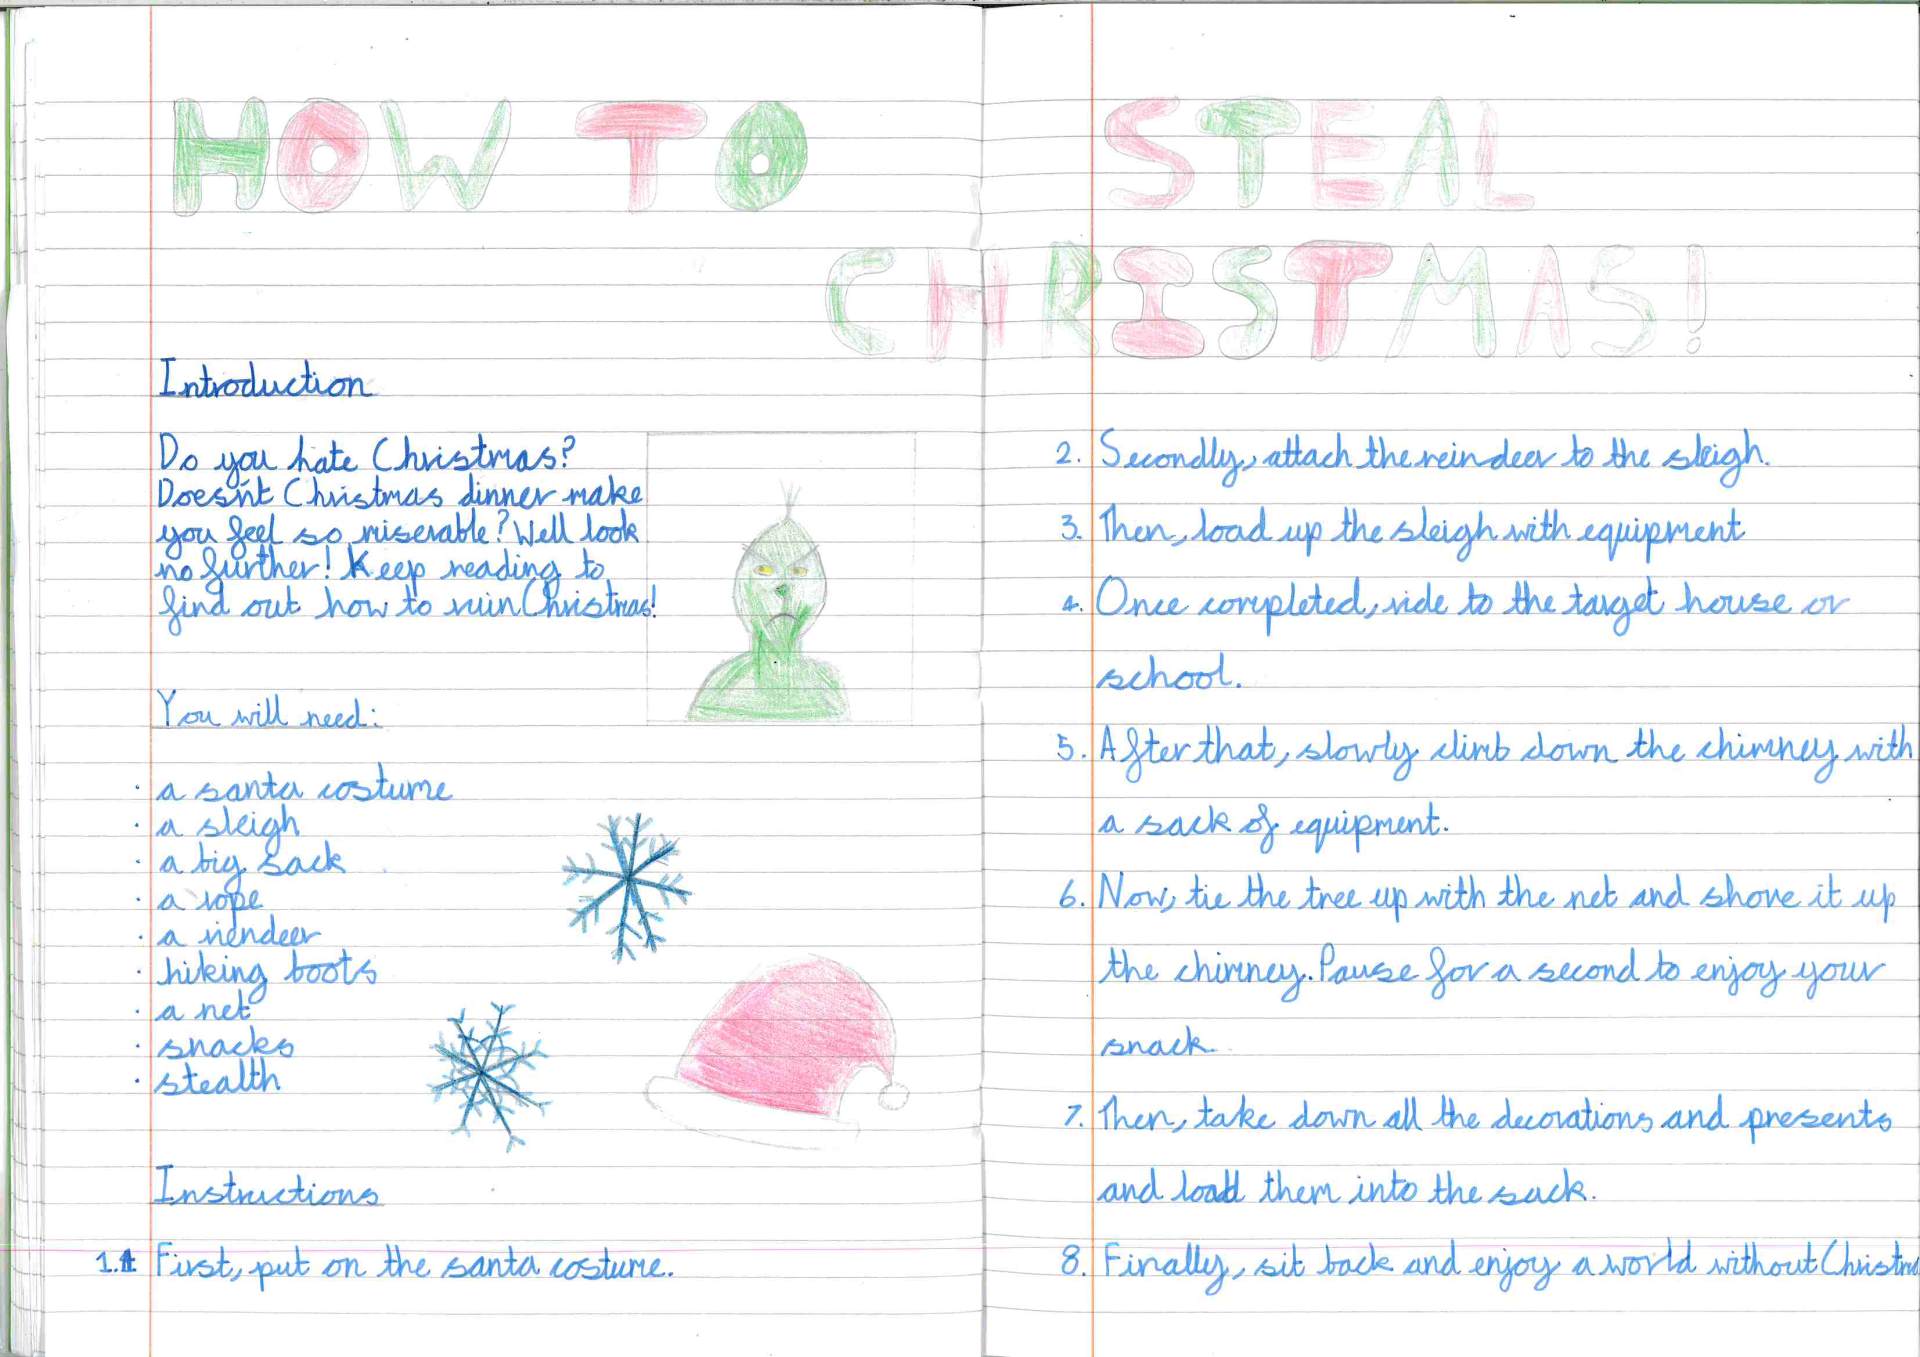 HOW TO STEAL
CHRISTMAS!
Introduction
Do you hate Christmas?
Doesn't Christmas dinner make
you feel so miserable? Well look
no further! Keep reading to
find out how to ruin Christmas!
You will need:
· a santa costume
· a sleigh
· a big sack
· a rope
· a riendeer
· hiking boots
· a net
· snacks
· stealth
Instructions
1. First, put on the santa costume.
2. Secondly, attach the reindeer to the sleigh.
3. Then, load up the sleigh with equipment
4. Once completed, ride to the target house or
school.
5. After that, slowly climb down the chimney with
a sack of equipment.
6. Now, tie the tree up with the net and shove it up
the chimney. Pause for a second to enjoy your
snack.
7. Then, take down all the decorations and presents
and load them into the sack.
8. Finally, sit back and enjoy a world without Christma